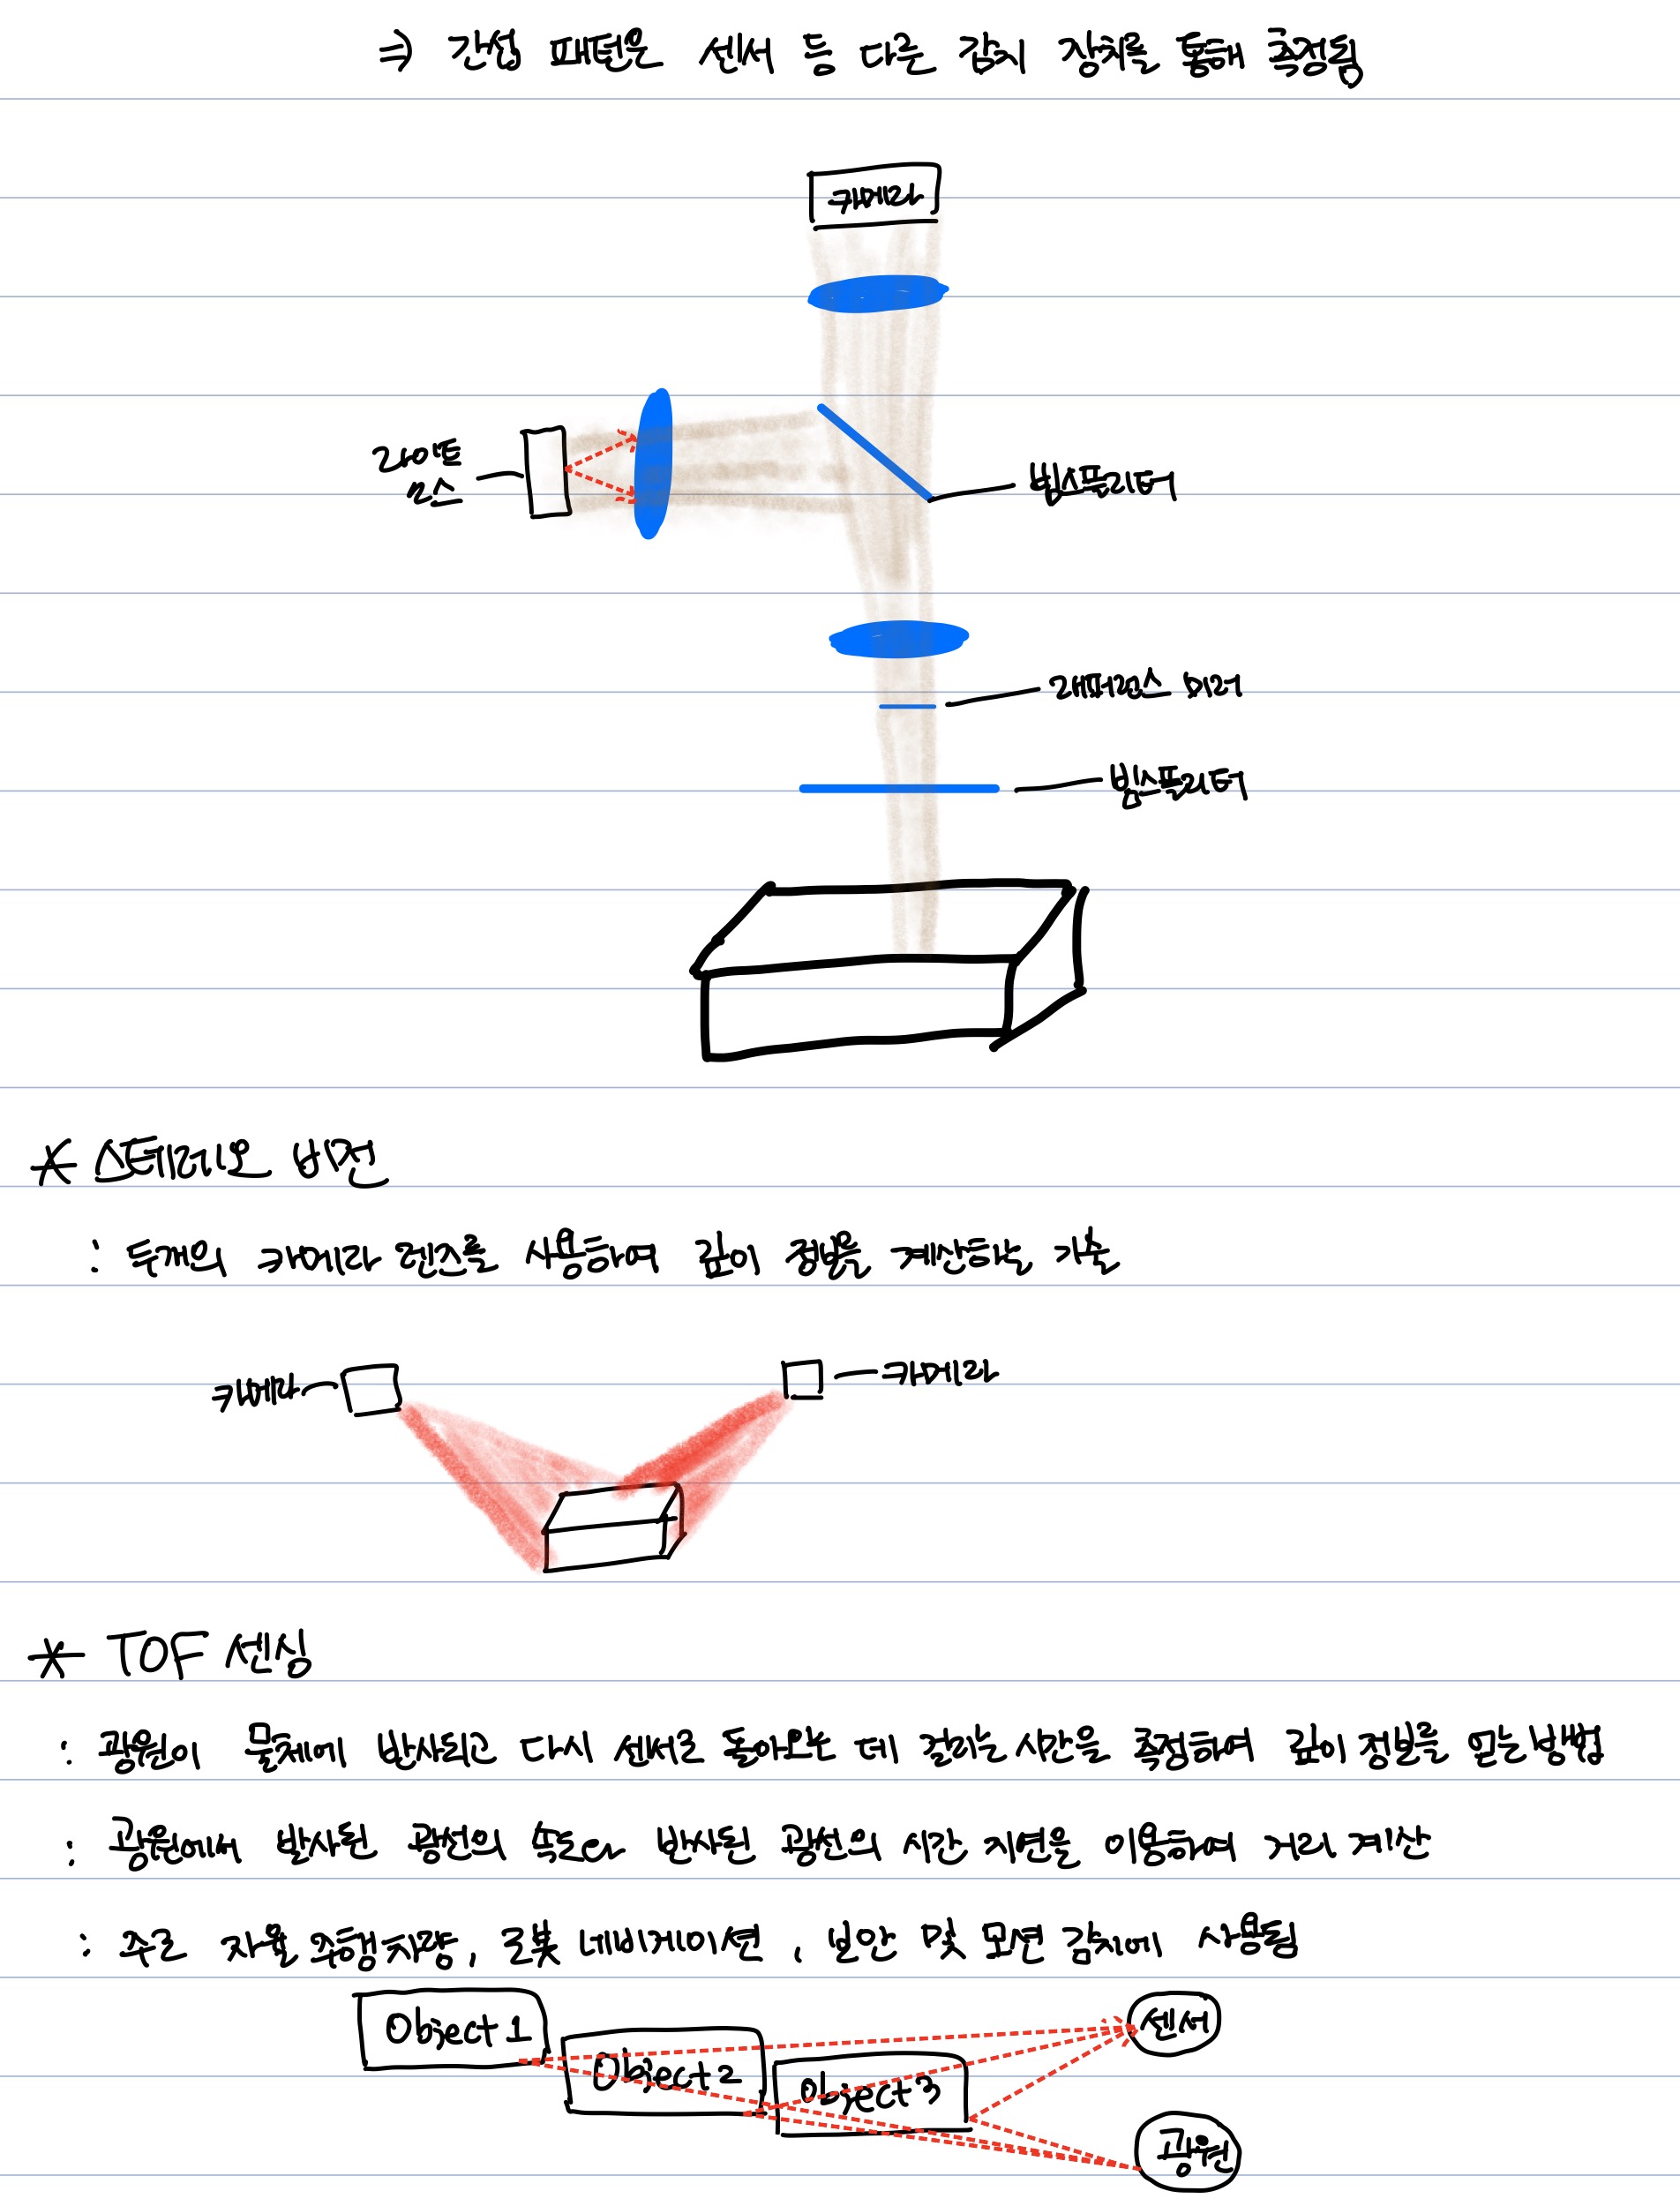 ⇒ 간섭 패턴은 센서 등 다른 감지 장치를 통해 측정됨
카메라
라이트
소스
빔스플리터
래퍼런스 미러
빔스플리터
* 스테레오 비전
: 두개의 카메라 렌즈를 사용하여 깊이 정보를 계산하는 기술
카메라
카메라
* TOF 센싱
: 광원이 물체에 반사되고 다시 센서로 돌아오는 데 걸리는 시간을 측정하여 깊이 정보를 얻는 방법
: 광원에서 발사된 광선의 속도와 반사된 광선의 시간 지연을 이용하여 거리 계산
: 주로 자율 주행차량, 로봇 네비게이션, 보안 및 모션 감지에 사용됨
Object 1
센서
Object 2
Object 3
광원